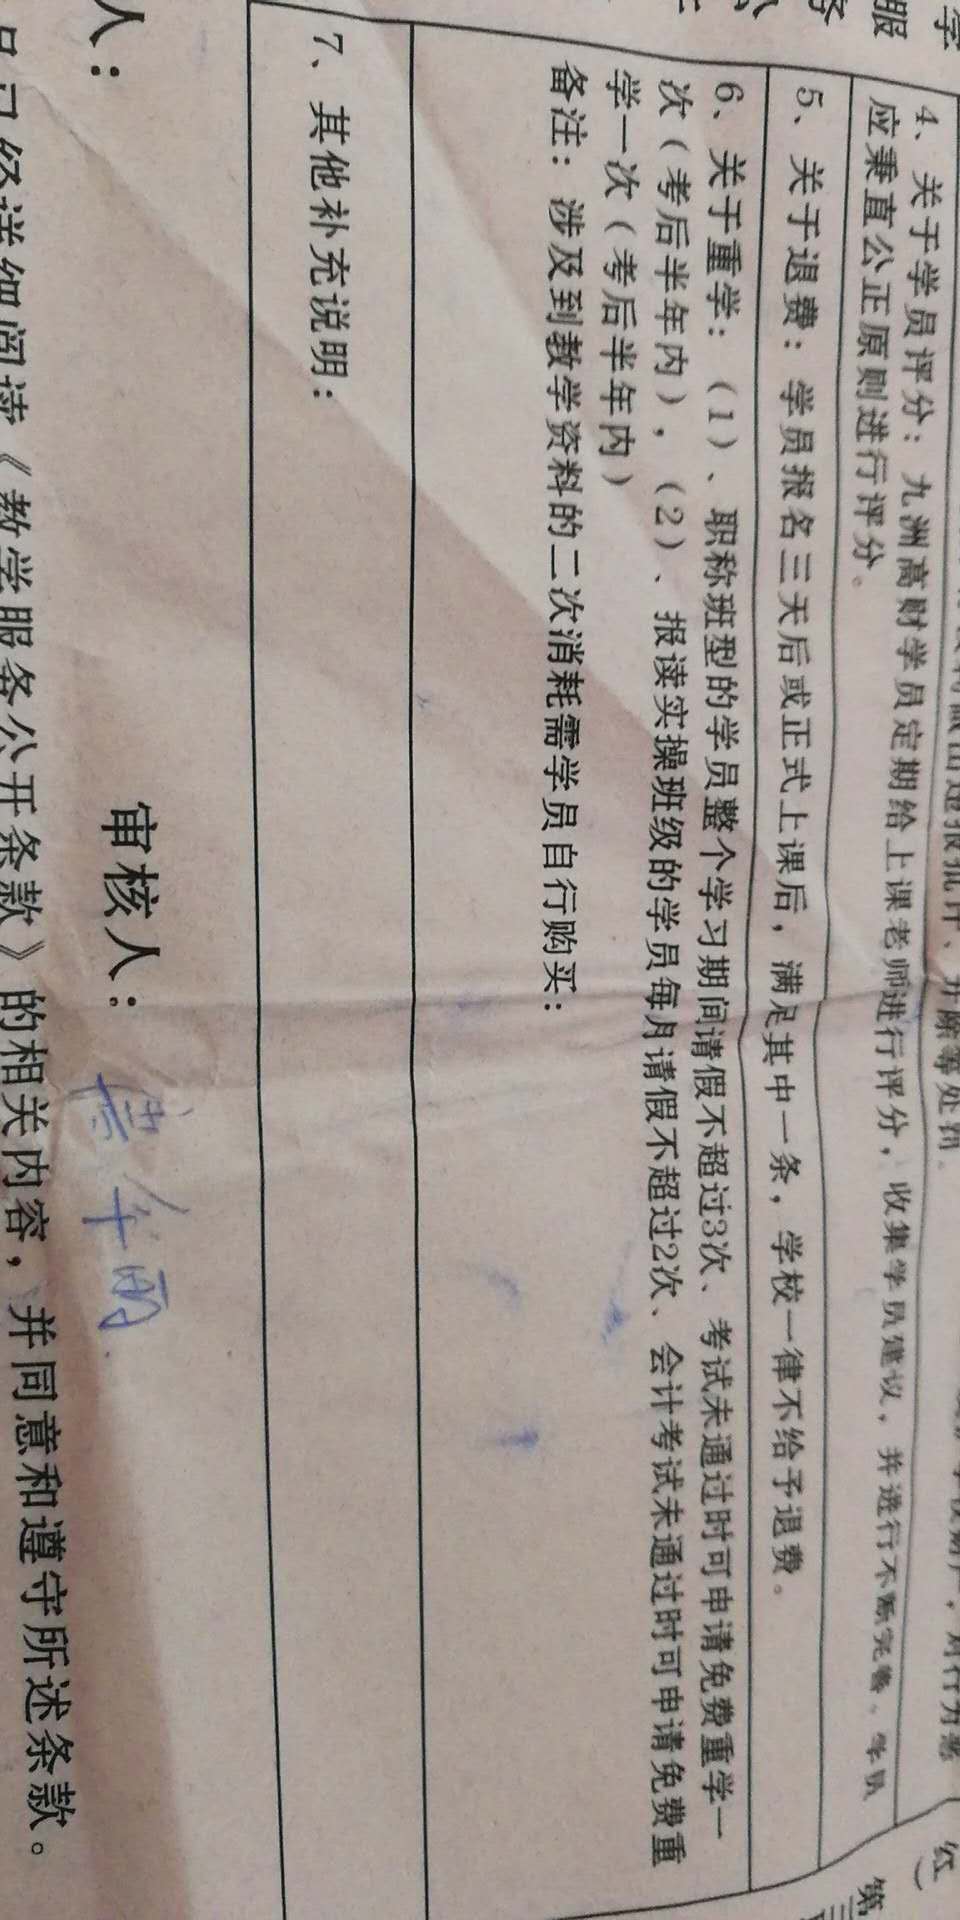 4、关于学员评分：九洲高财学员定期给上课老师进行评分，收集学员建议，并进行不断完善。学员
应秉直公正原则进行评分。
5、关于退费：学员报名三天后或正式上课后，满足其中一条，学校一律不给予退费。
6、关于重学：（1）、职称班型的学员整个学习期间请假不超过3次、考试未通过时可申请免费重学一
次（考后半年内），（2）、报读实操班级的学员每月请假不超过2次、会计考试未通过时可申请免费重
学一次（考后半年内）
备注：涉及到教学资料的二次消耗需学员自行购买：
7、其他补充说明：
人： 审核人：
已经详细阅读《教学服务公开条款》的相关内容，并同意和遵守所述条款。